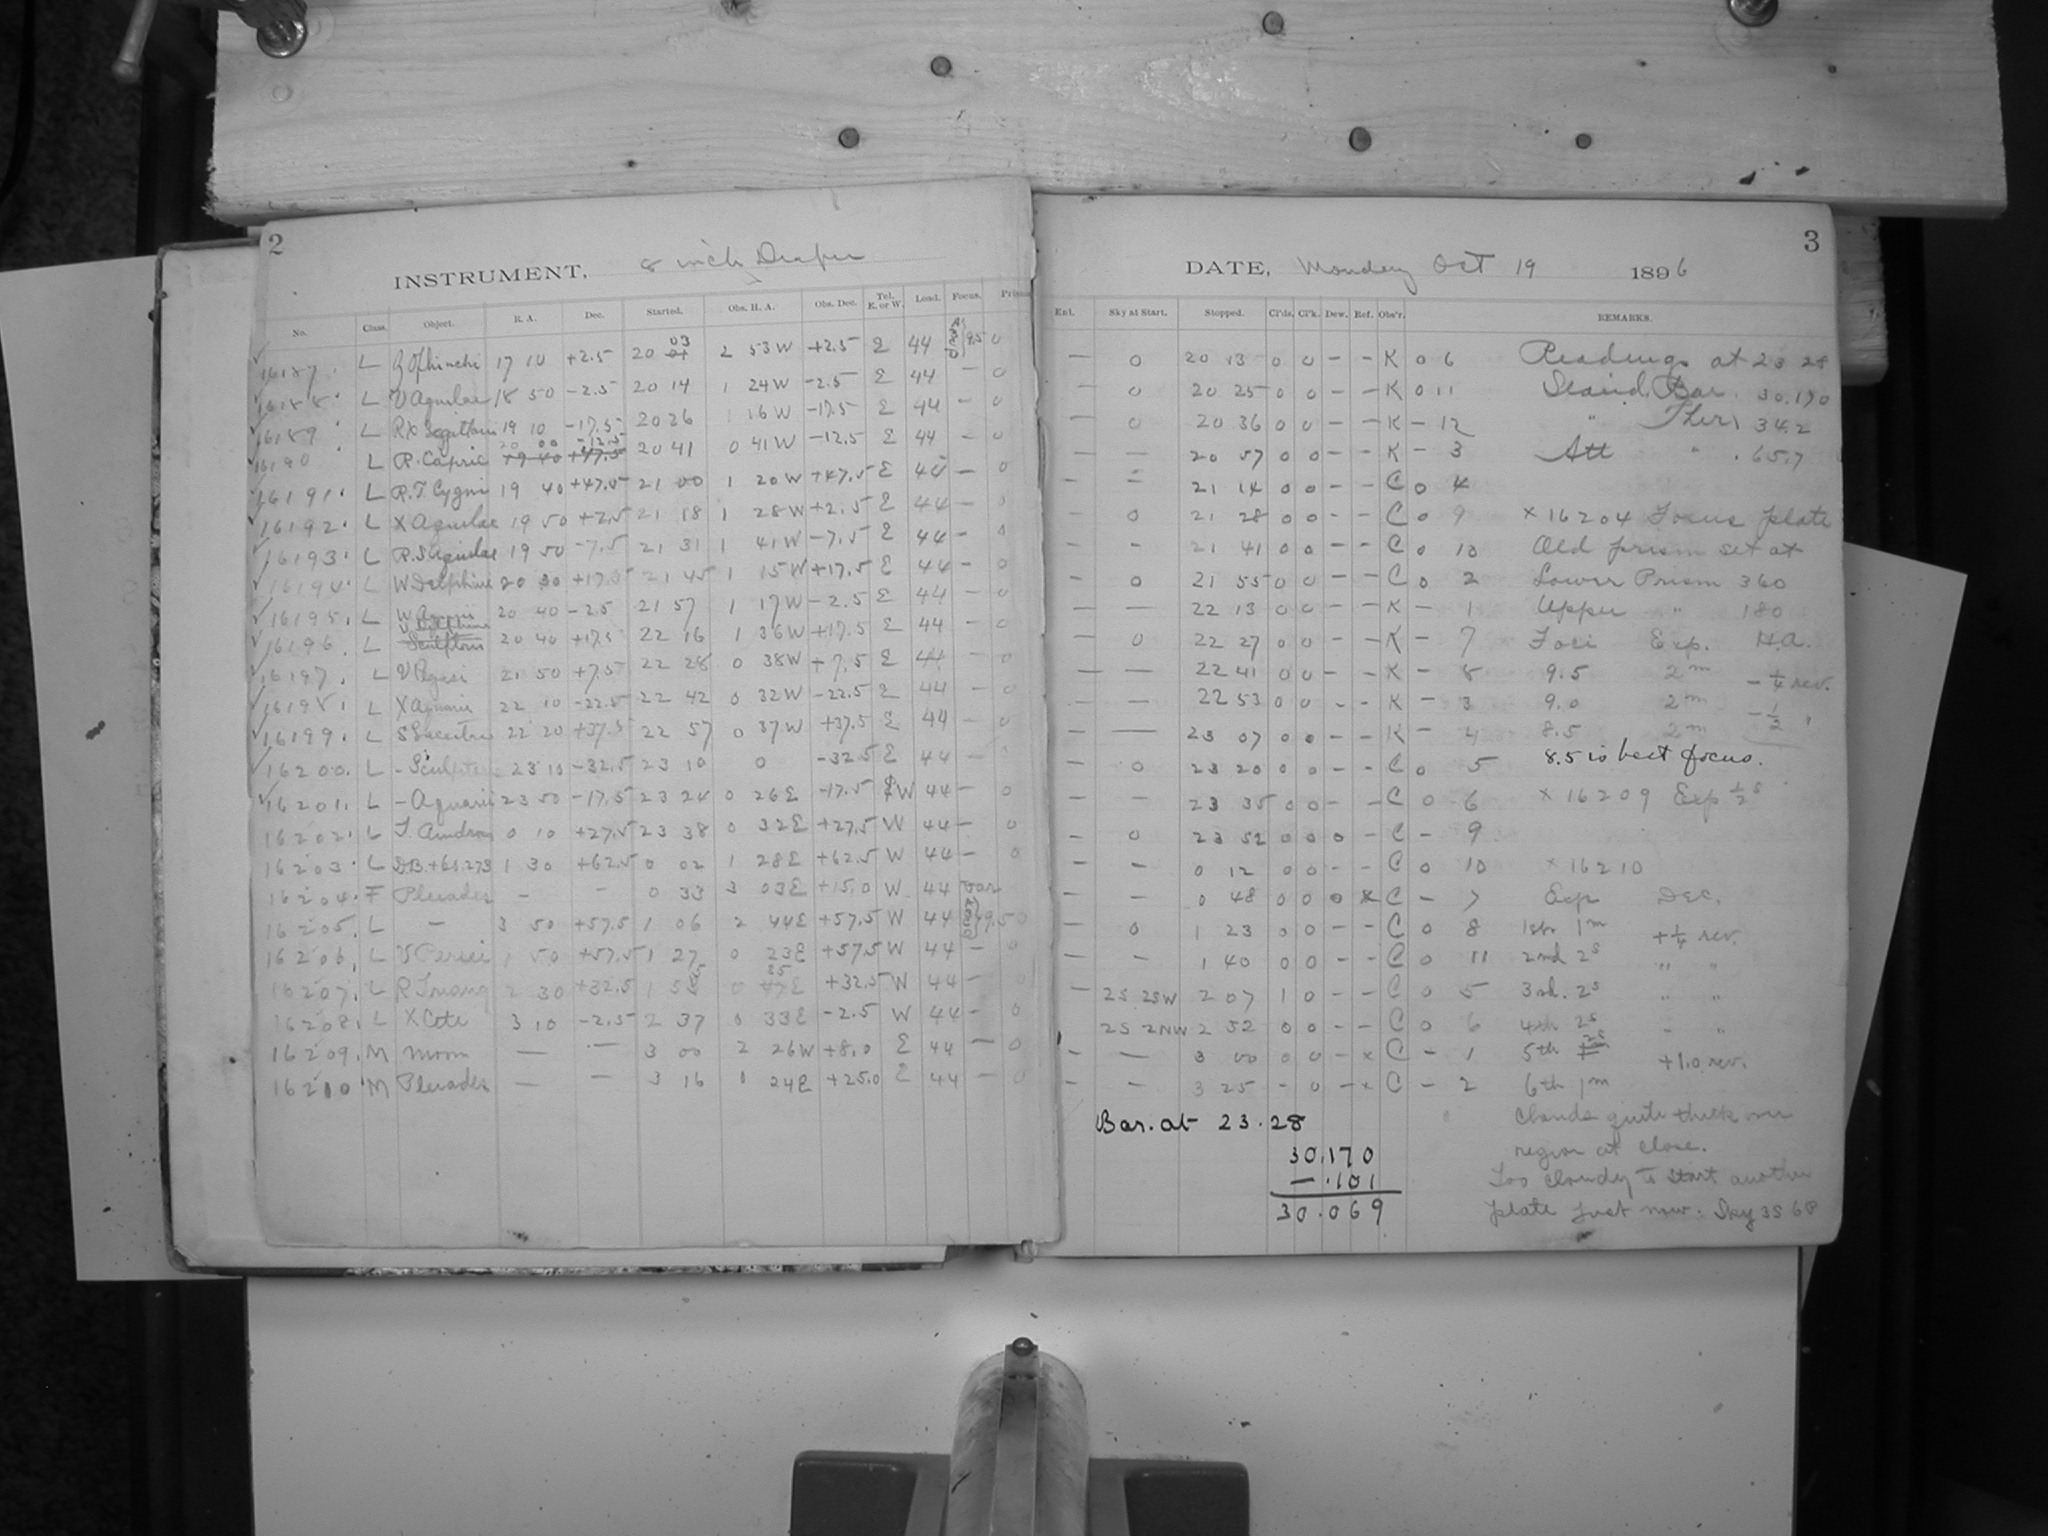 2
INSTRUMENT, 8 inch Draper
No. Class. Object. R. A. Dec. Started. Obs. H. A. Obs. Dec. Tel. E. or W. Load. Focus.
16187. L Ophiuchi 17 10 +2.5 20 03 2 53 W +2.5 E 44 9.5 0
16188. L V Aquilae 18 50 -2.5 20 14 1 24 W -2.5 E 44 - 0
16189 L RX Sagittarii 19 10 -17.5 20 26 1 16 W -17.5 E 44 - 0
16190 L R. Capric 20 00 -12.5 20 41 0 41 W -12.5 E 44 - 0
16191. L R.T. Cygni 19 40 +47.5 21 00 1 20 W +47.5 E 44 - 0
16192. L X Aquilae 19 50 +2.5 21 18 1 28 W +2.5 E 44 - 0
16193. L R.S Aquilae 19 50 -7.5 21 31 1 41 W -7.5 E 44 - 0
16194. L W Delphini 20 30 +17.5 21 45 1 15 W +17.5 E 44 - 0
16195. L W Aquarii 20 40 -2.5 21 57 1 17 W -2.5 E 44 - 0
16196. L V Delphini 20 40 +17.5 22 16 1 36 W +17.5 E 44 - 0
16197. L V Pegasi 21 50 +7.5 22 28 0 38 W +7.5 E 44 - 0
16198. L X Aquarii 22 10 -22.5 22 42 0 32 W -22.5 E 44 - 0
16199. L S Lacertae 22 20 +37.5 22 57 0 37 W +37.5 E 44 - 0
16200. L - Sculptoris 23 10 -32.5 23 10 0 -32.5 E 44 -
16201. L - Aquarii 23 50 -17.5 23 24 0 26 E -17.5 W 44 - 0
16202. L T. Androm 0 10 +27.5 23 38 0 32 E +27.5 W 44 - 0
16203. L 1 30 +62.5 0 02 1 28 E +62.5 W 44 - 0
16204. F Pleiades - - 0 33 3 03 E +15.0 W 44 var
16205. L - 3 50 +57.5 1 06 2 44 E +57.5 W 44 9.5 0
16206. L V Persei 1 50 +57.5 1 27 0 23 E +57.5 W 44 - 0
16207. L R Triang 2 30 +32.5 1 55 0 35 E +32.5 W 44 - 0
16208. L X Ceti 3 10 -2.5 2 37 0 33 E -2.5 W 44 - 0
16209. M Moon — — 3 00 2 26 W +8.0 E 44 - 0
16210 M Pleiades — — 3 16 0 24 E +25.0 E 44 - 0
3
DATE, Monday Oct 19 1896
Enl. Sky at Start. Stopped. Cl'ds. Cl'k. Dew. Ref. Obs'r. REMARKS.
— 0 20 13 0 0 - - K 0 6 Readings at 23 28
- 0 20 25 0 0 - - K 0 11 Stand. Bar. 30.170
- 0 20 36 0 0 - - K - 12 " Ther. 34.2
— — 20 57 0 0 - - K - 3 Att " . 65.7
- - 21 14 0 0 - - C 0 4
- 0 21 28 0 0 - - C 0 9 × 16204 Focus plate
- - 21 41 0 0 - - C 0 10 Old prism set at
- 0 21 55 0 0 - - C 0 2 Lower Prism 360
- — 22 13 0 0 - - K - 1 Upper " 180
- 0 22 27 0 0 - - K - 7 Foci Exp. H.A.
— — 22 41 0 0 - - K - 8 9.5 2m -1/4 rev.
- — 22 53 0 0 - - K - 3 9.0 2m -1/2 "
- — 23 07 0 0 - - K - 4 8.5 2m
- 0 23 20 0 0 - - C 0 5 8.5 is best focus.
- - 23 35 0 0 - - C 0 6 × 16209 Exp 1/2 s
- 0 23 52 0 0 0 - C - 9
- - 0 12 0 0 - - C 0 10 × 16210
- - 0 48 0 0 0 × C - 7 Exp Dec.
- 0 1 23 0 0 - - C 0 8 1st 1m +1/4 rev.
- - 1 40 0 0 - - C 0 11 2nd 2s " "
- 2S 2SW 2 07 1 0 - - C 0 5 3rd. 2s " "
2S 2NW 2 52 0 0 - - C 0 6 4th 2s - "
- — 3 00 0 0 - × C - 1 5th 2s +1.0 rev.
- - 3 25 - 0 - × C - 2 6th 1m
Clouds quite thick over
region at close.
Too cloudy to start another
plate just now. Sky 3S 6P
Bar. at 23.28
30.170
- .101
30.069